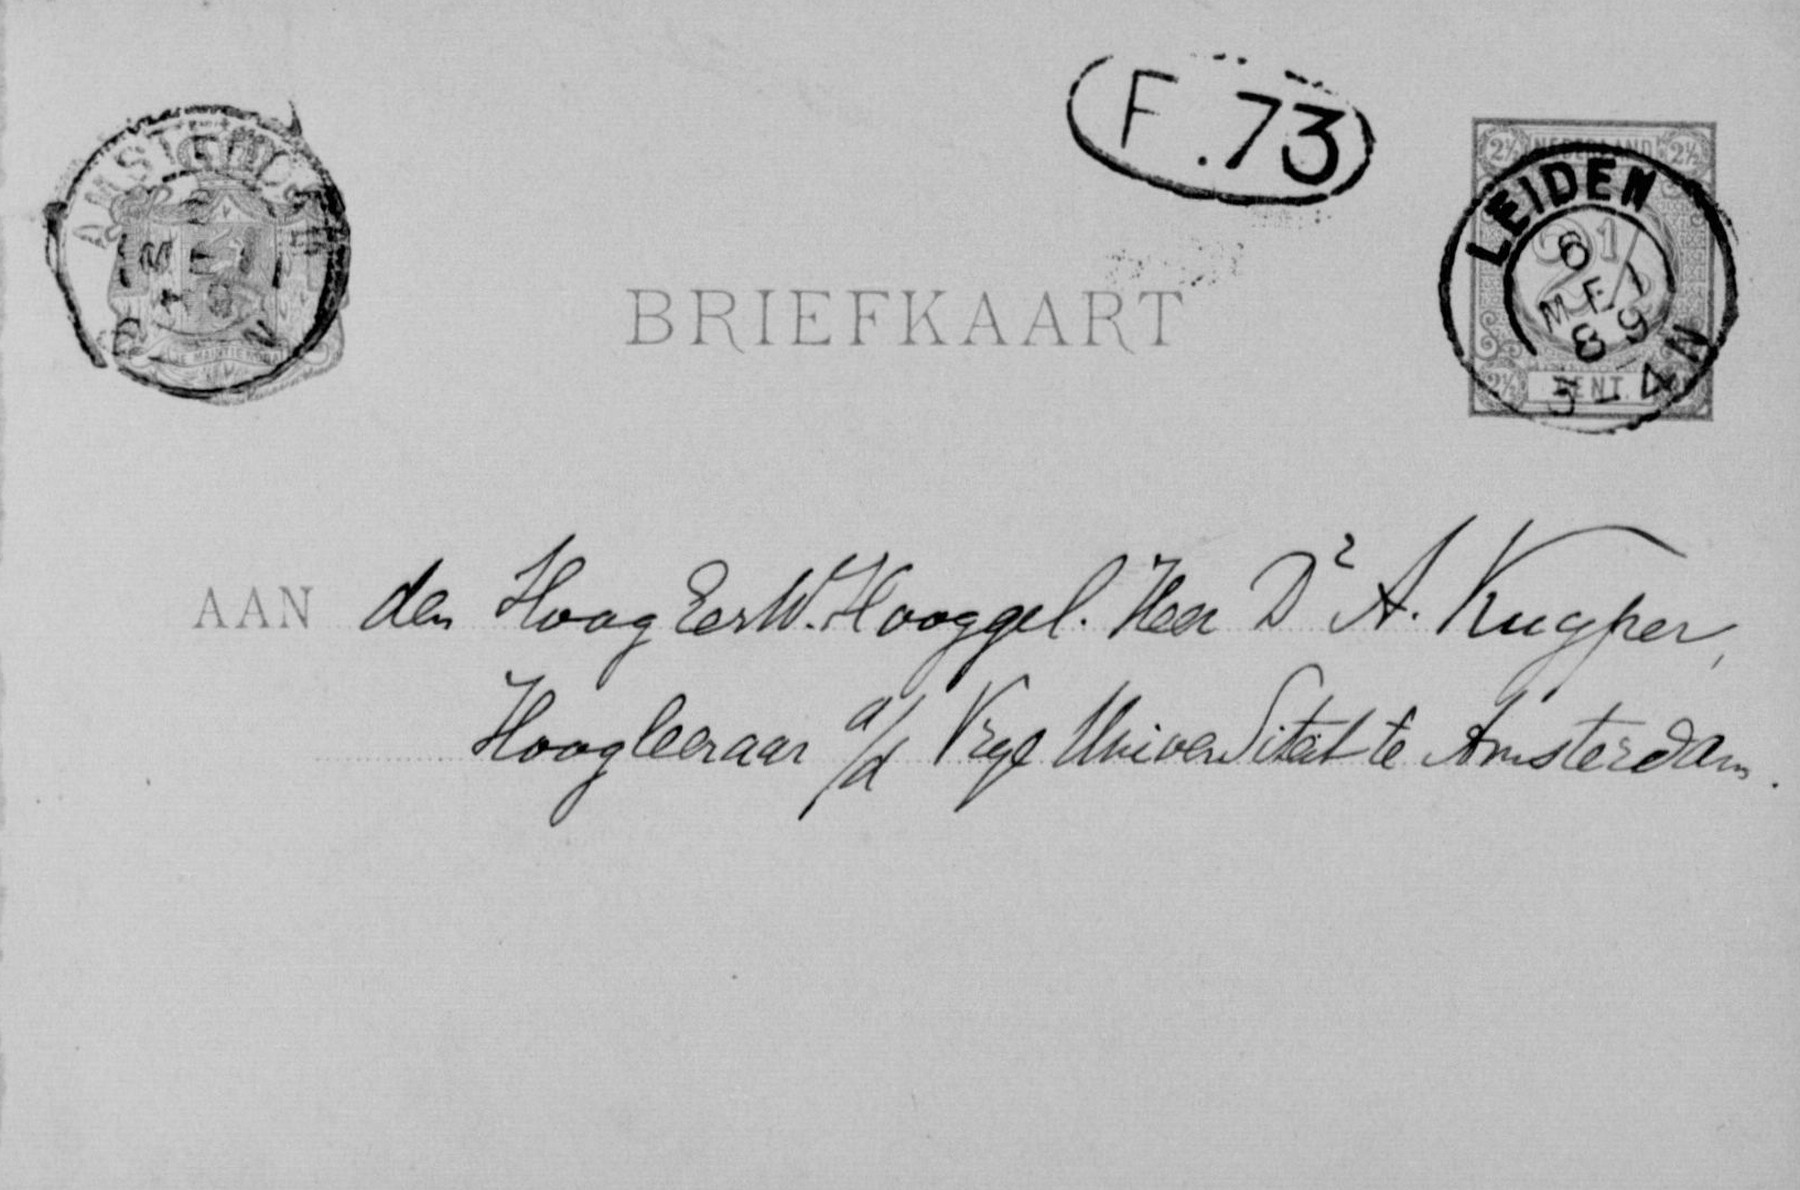 F. 73
AMSTERDAM
BRIEFKAART
NEDERLAND
2½ 2½
LEIDEN
6
MEI
89
3-4N
CENT
2½
JE MAINTIENDRAI
AAN den HoogEerW. Hooggel. Heer Dr A. Kuyper,
Hoogleeraar a/d Vrye Universiteit te Amsterdam.